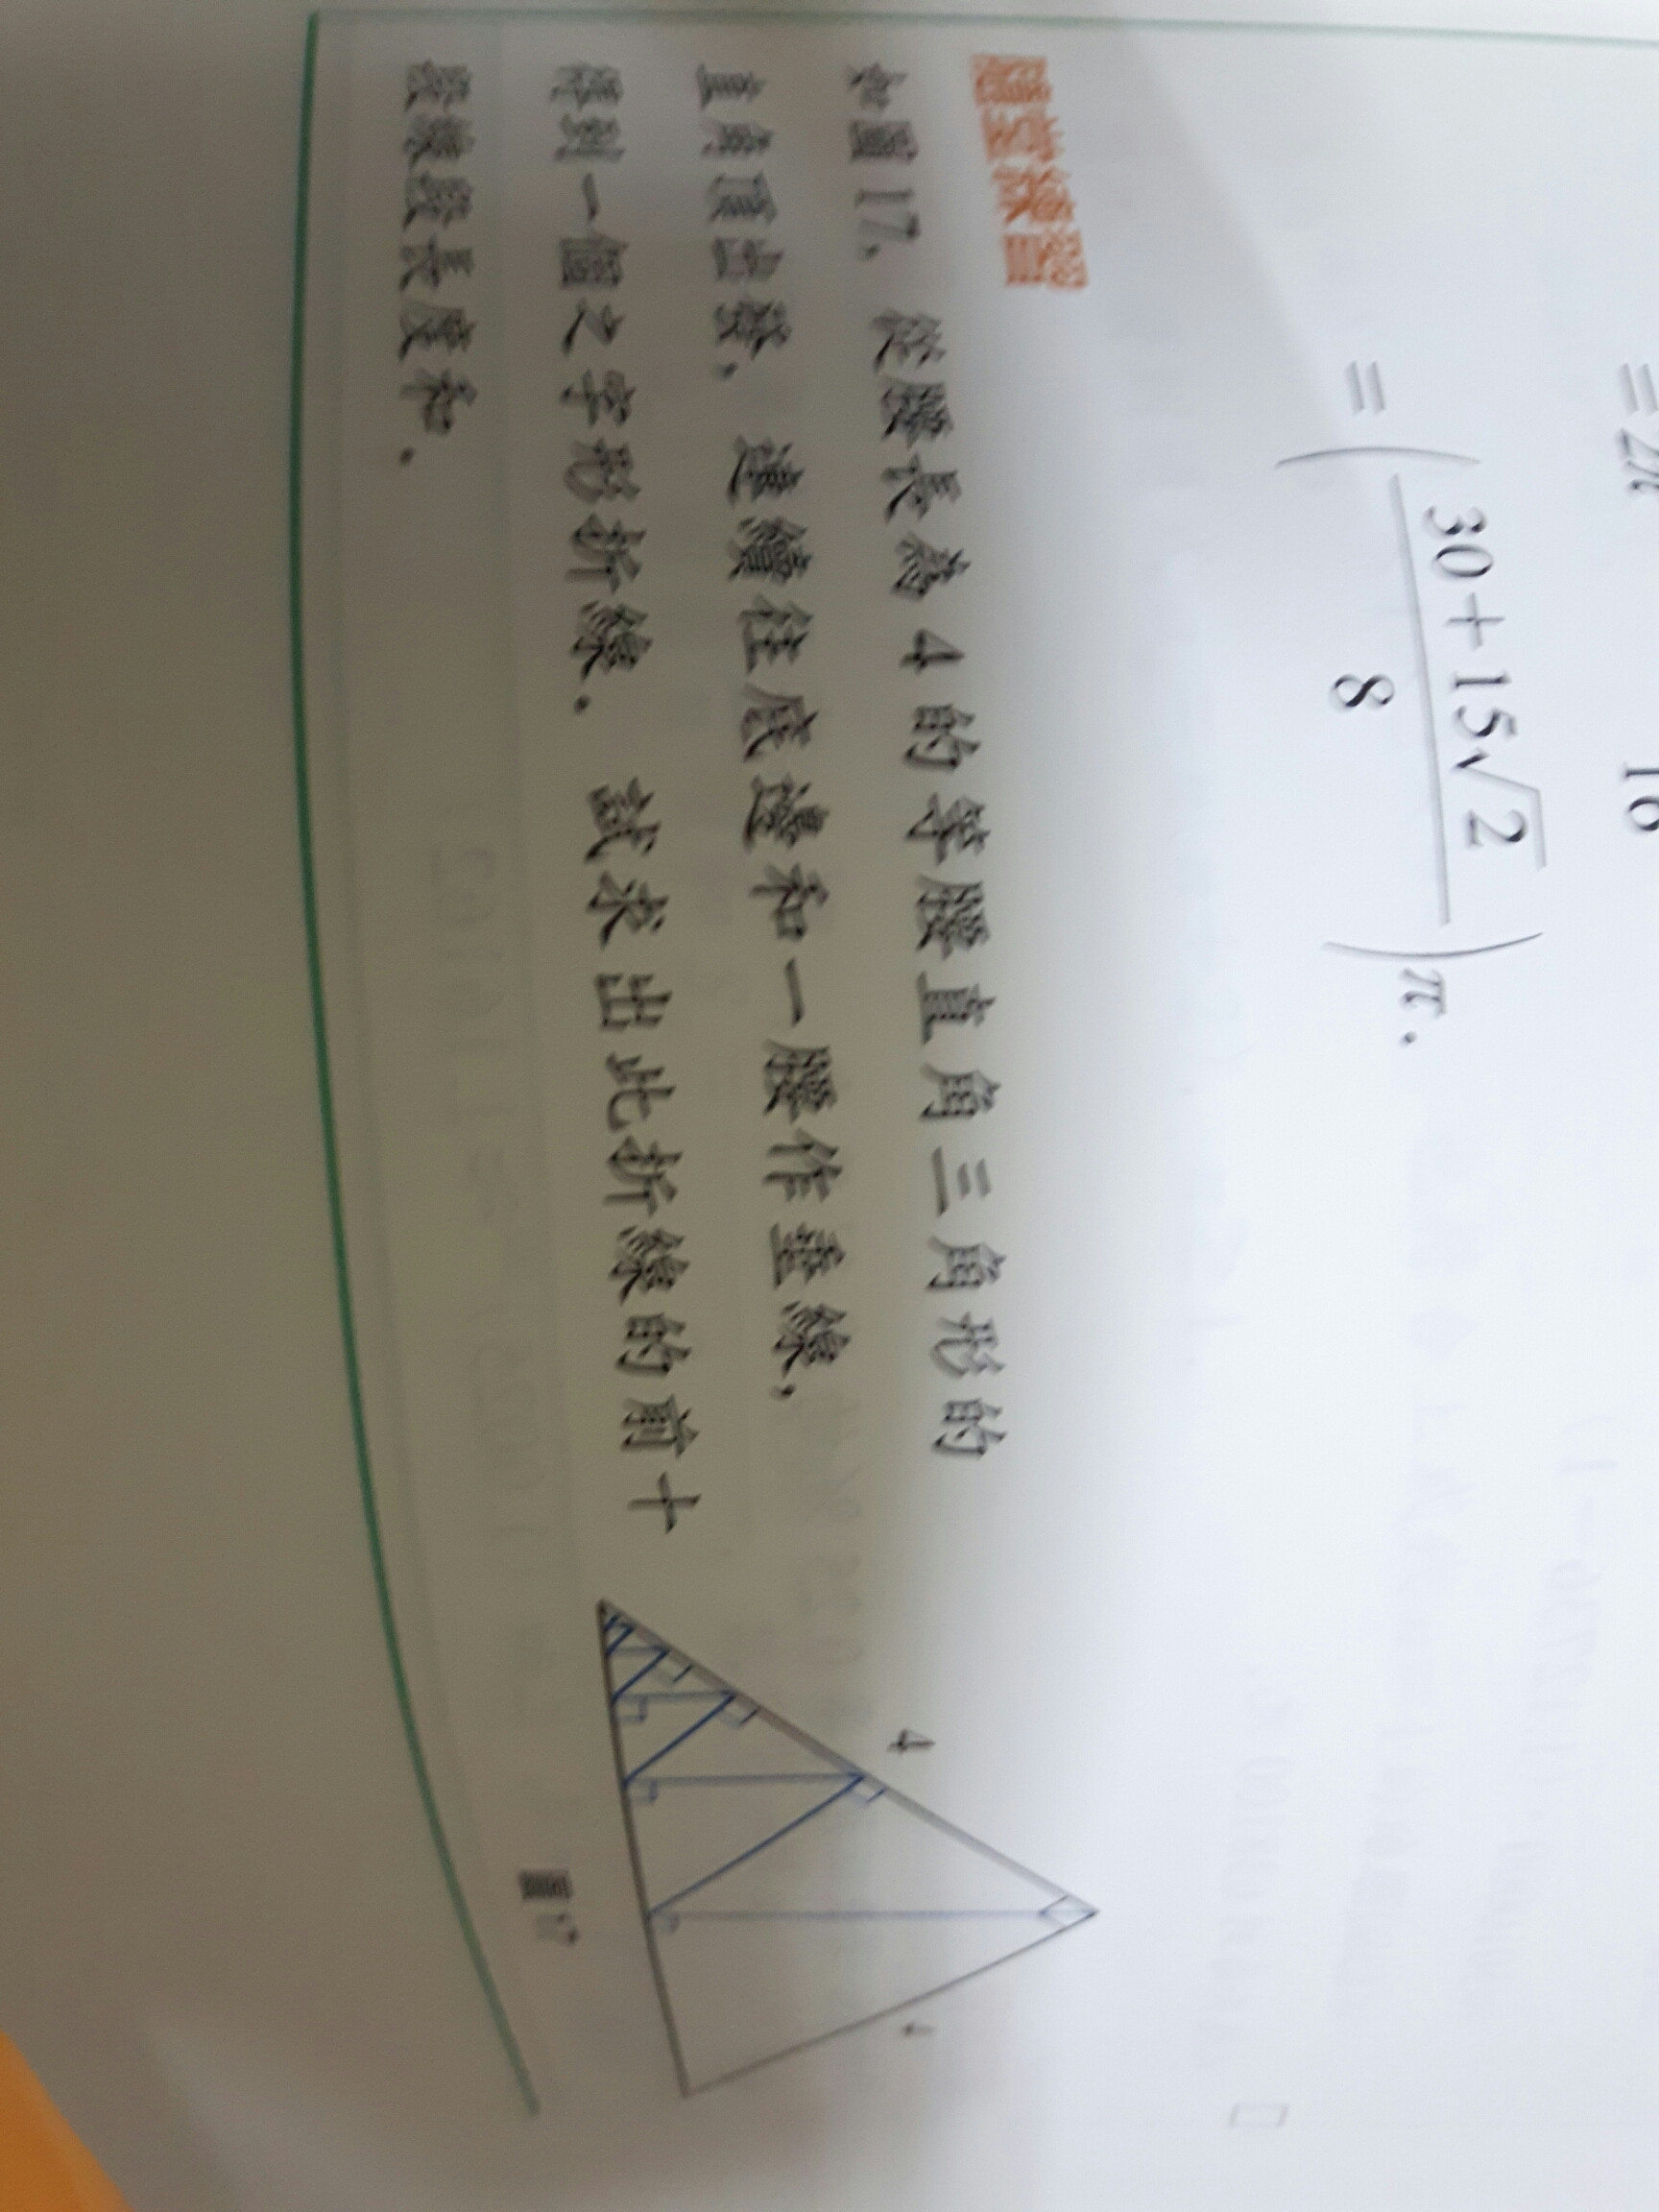 = 2π
16
= ( 30 + 15√2 / 8 ) π .
隨堂練習
如圖 17，從腰長為 4 的等腰直角三角形的
直角頂出發，連續往底邊和一腰作垂線，
得到一個之字形折線．試求出此折線的前十
段線段長度和．
4
圖 17